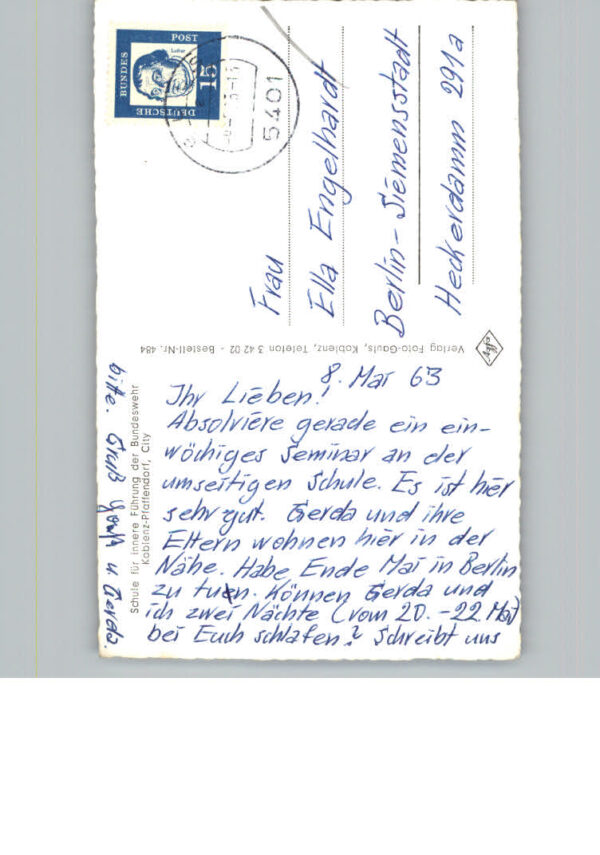 8. Mai 63
Ihr Lieben!
Absolviere gerade ein ein-
wöchiges Seminar an der
umseitigen Schule. Es ist hier
sehr gut. Gerda und ihre
Eltern wohnen hier in der
Nähe. Habe Ende Mai in Berlin
zu tun. Können Gerda und
ich zwei Nächte (vom 20.-22. Mai)
bei Euch schlafen? Schreibt uns
bitte. Gruß u. Gerda.
Schule für innere Führung der Bundeswehr
Koblenz-Pfaffendorf, City
Verlag Foto-Gauls, Koblenz, Telefon 3 42 02 - Bestell-Nr. 484
Agfa
Frau
Ella Engelhardt
Berlin-Siemensstadt
Heckerdamm 291a
DEUTSCHE
BUNDES
POST
Luther
15
5401